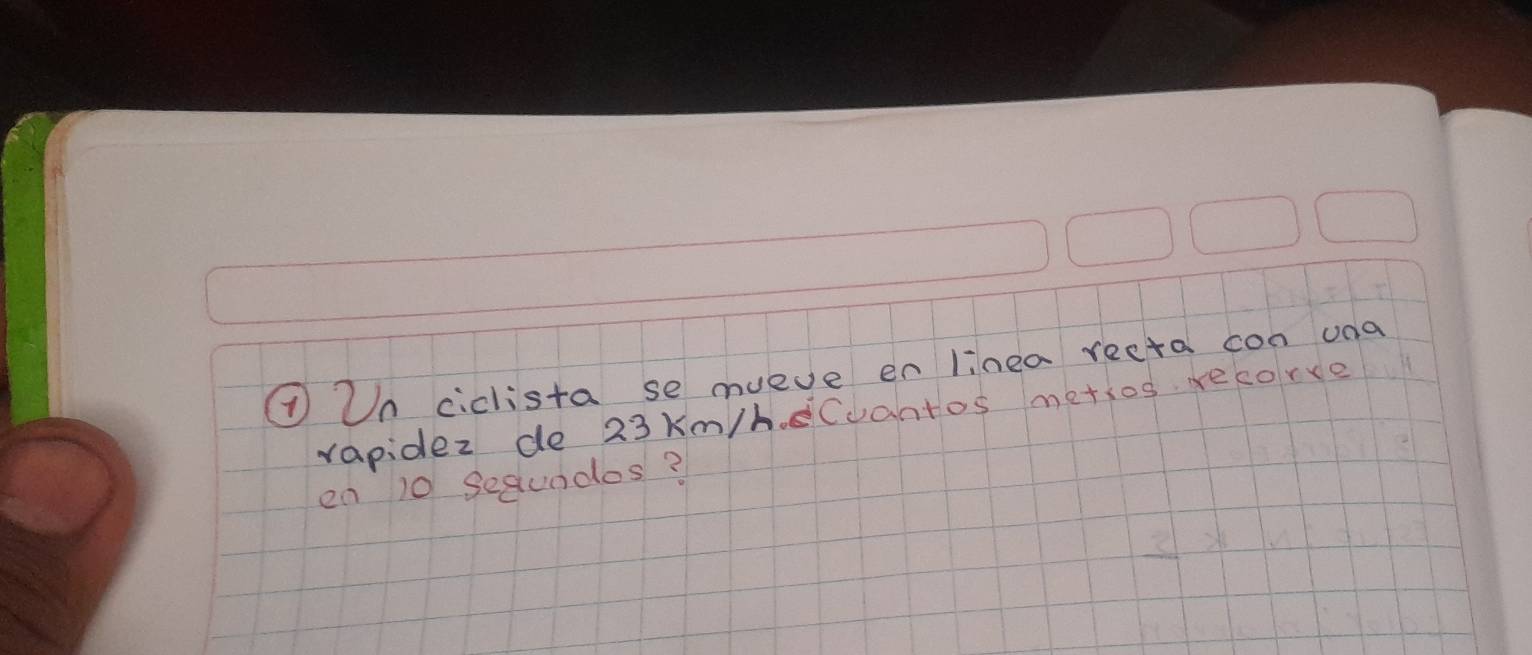 ① Un ciclista se mueve en linea recta con una
rapidez de 23 Km/h. ¿Cuantos metros recorre
en 10 segundos?